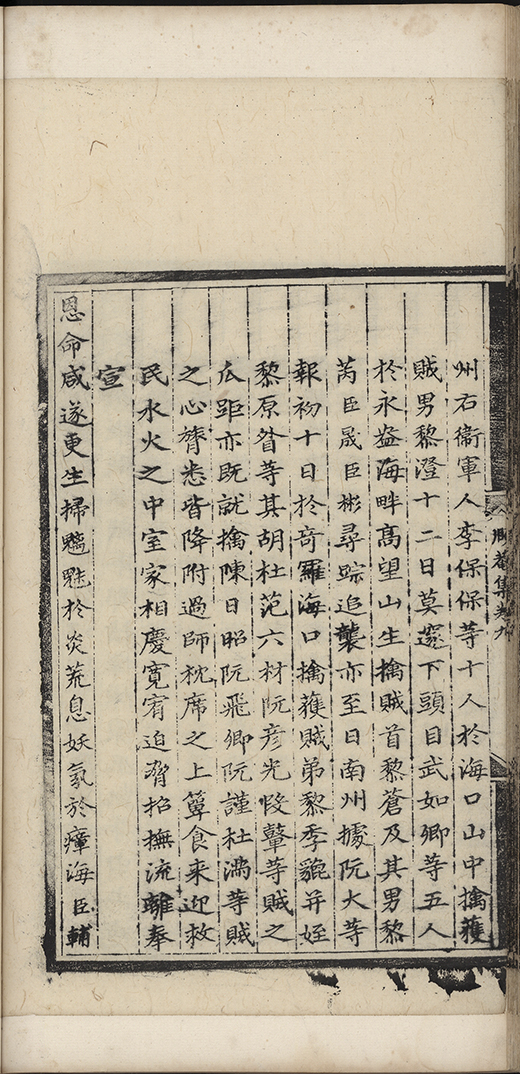 州右衞軍人李保保等十人於海口山中擒獲
賊男黎澄十二日莫邃下頭目武如卿等五人
於永盎海畔髙望山生擒賊首黎蒼及其男黎
芮臣晟臣彬尋踪追襲亦至日南州據阮大等
報初十日於奇羅海口擒獲賊弟黎季貔并姪
黎原咎等其胡杜范六材阮彦光段鞶等賊之
爪距亦既就擒陳日昭阮飛卿阮謹杜滿等賊
之心膂悉皆降附過師枕席之上簞食来迎救
民水火之中室家相慶寛宥迫脅招撫流離奉
宣
恩命咸遂更生掃魑魅於炎荒息妖氛於瘴海臣輔
集卷九